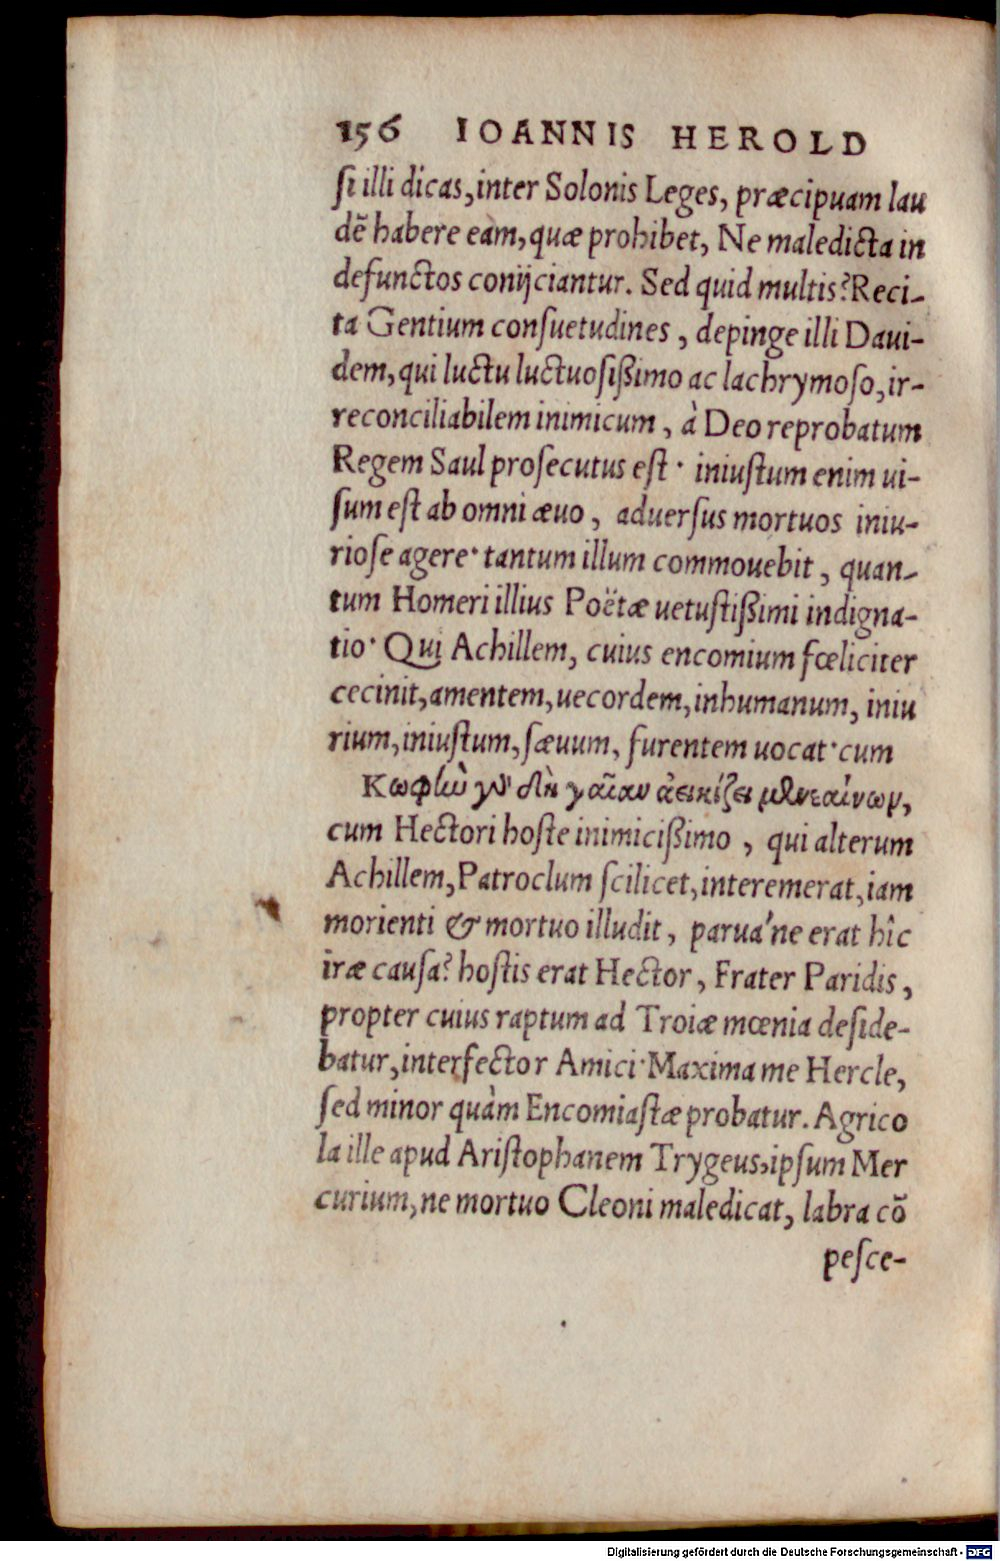 156 IOANNIS HEROLD
ſi illi dicas, inter Solonis Leges, præcipuam lau
dẽ habere eam, quæ prohibet, Ne maledicta in
defunctos conijciantur. Sed quid multis? Reci-
ta Gentium conſuetudines, depinge illi Daui-
dem, qui luctu luctuoſißimo ac lachrymoſo, ir-
reconciliabilem inimicum, à Deo reprobatum
Regem Saul proſecutus eſt· iniuſtum enim ui-
ſum eſt ab omni æuo, aduerſus mortuos iniu-
rioſe agere· tantum illum commouebit, quan-
tum Homeri illius Poëtæ uetuſtißimi indigna-
tio· Qui Achillem, cuius encomium fœliciter
cecinit, amentem, uecordem, inhumanum, iniu
rium, iniuſtum, ſæuum, furentem uocat· cum
Κωφὴν γὰρ δὴ γαῖαν ἀεικίζει μενεαίνων,
cum Hectori hoſte inimicißimo, qui alterum
Achillem, Patroclum ſcilicet, interemerat, iam
morienti & mortuo illudit, parua'ne erat hîc
iræ cauſa? hoſtis erat Hector, Frater Paridis,
propter cuius raptum ad Troiæ mœnia deſide-
batur, interfector Amici· Maxima me Hercle,
ſed minor quàm Encomiaſtæ probatur. Agrico
la ille apud Ariſtophanem Trygeus, ipſum Mer
curium, ne mortuo Cleoni maledicat, labra cõ
peſce-
Digitalisierung gefördert durch die Deutsche Forschungsgemeinschaft - DFG